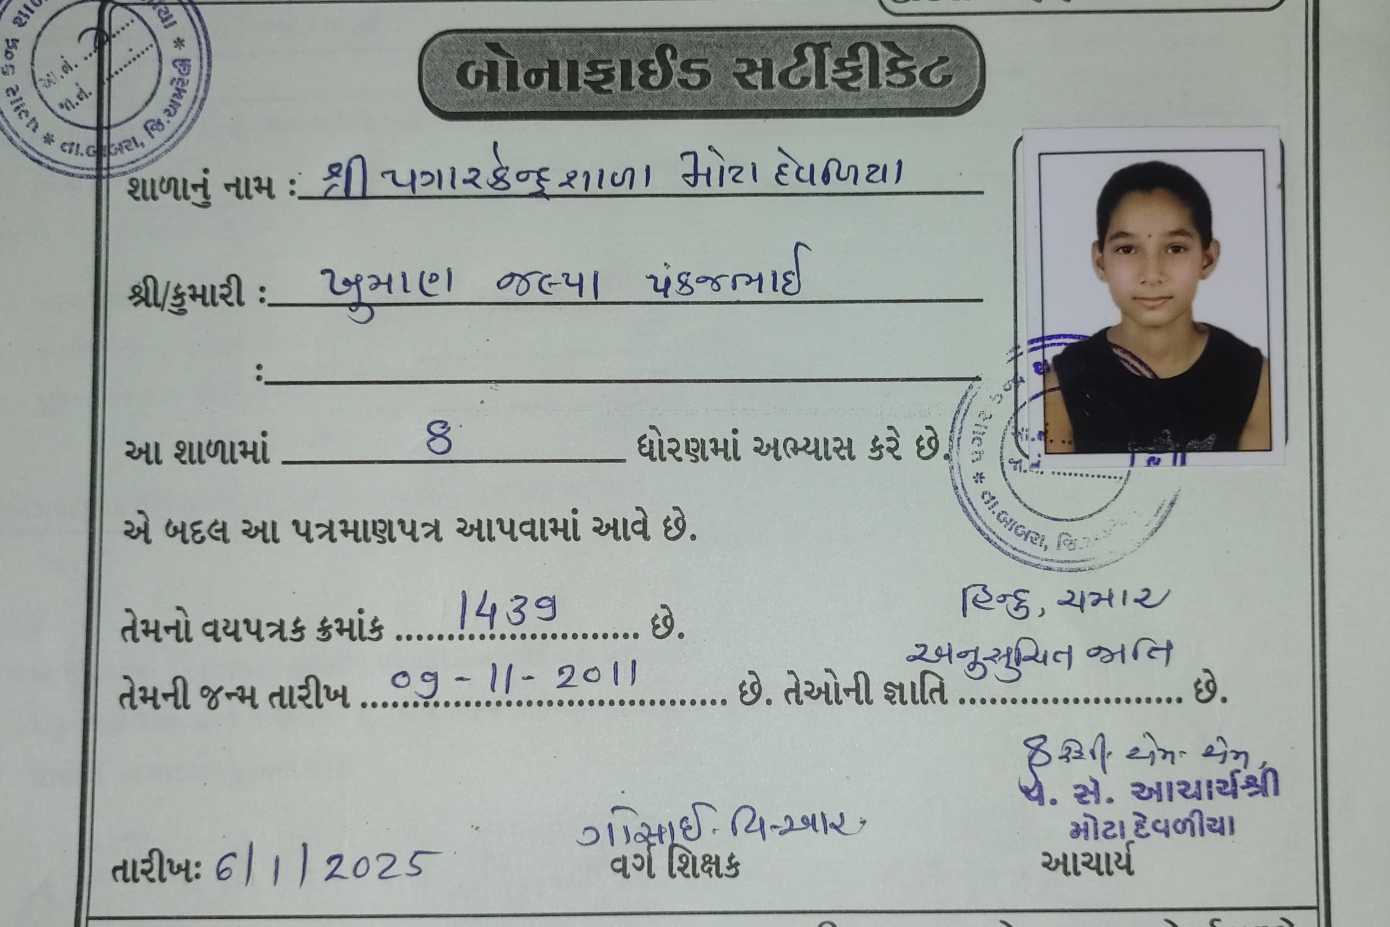 બોનાફાઈડ સર્ટીફીકેટ
શાળાનું નામ : શ્રી પગારકેન્દ્ર શાળા મોટા દેવળિયા
શ્રી/કુમારી : ખુમાણ જલ્પા પંકજભાઈ
:
આ શાળામાં 8 ધોરણમાં અભ્યાસ કરે છે.
એ બદલ આ પત્રમાણપત્ર આપવામાં આવે છે.
તેમનો વયપત્રક ક્રમાંક 1439 છે.
હિન્દુ, ચમાર
અનુસુચિત જાતિ
તેમની જન્મ તારીખ 09-11-2011 છે. તેઓની જ્ઞાતિ છે.
પે. સે. આચાર્યશ્રી
ગોસાઈ. વિ. આર.
મોટા દેવળીયા
તારીખઃ 6/1/2025 વર્ગ શિક્ષક આચાર્ય
તા.બાબરા, જિ.અમરેલી